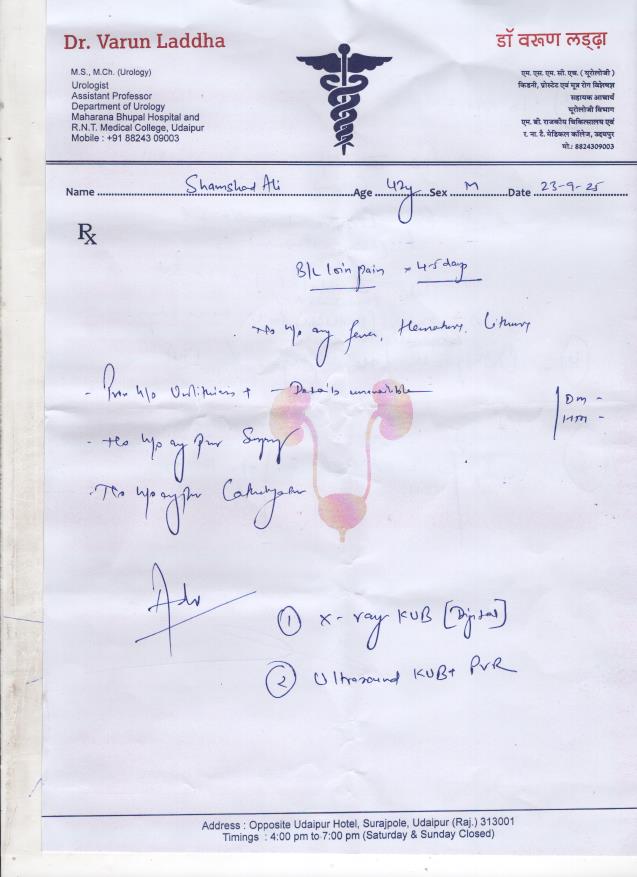 Dr. Varun Laddha
डॉ वरूण लड्ढ़ा
M.S., M.Ch. (Urology)
Urologist
Assistant Professor
Department of Urology
Maharana Bhupal Hospital and
R.N.T. Medical College, Udaipur
Mobile : +91 88243 09003
एम. एस. एम. सी. एच. ( यूरोलोजी )
किडनी, प्रोस्टेट एवं मूत्र रोग विशेषज्ञ
सहायक आचार्य
यूरोलोजी विभाग
एम. बी. राजकीय चिकित्सालय एवं
र. ना. टै. मेडिकल कॉलेज, उदयपुर
मो.: 8824309003
Name Shamshad Ali Age 42y Sex M Date 23-9-25
Rx
B/L loin pain × 4-5 days
No h/o any fever, Hematuria,
- Prev h/o + - Details unavailable
DM -
HTN -
- No h/o any prev Surgery
- No h/o any prev
Adv
1 X-ray KUB [Digital]
2 Ultrasound KUB + PVR
Address : Opposite Udaipur Hotel, Surajpole, Udaipur (Raj.) 313001
Timings : 4:00 pm to 7:00 pm (Saturday & Sunday Closed)